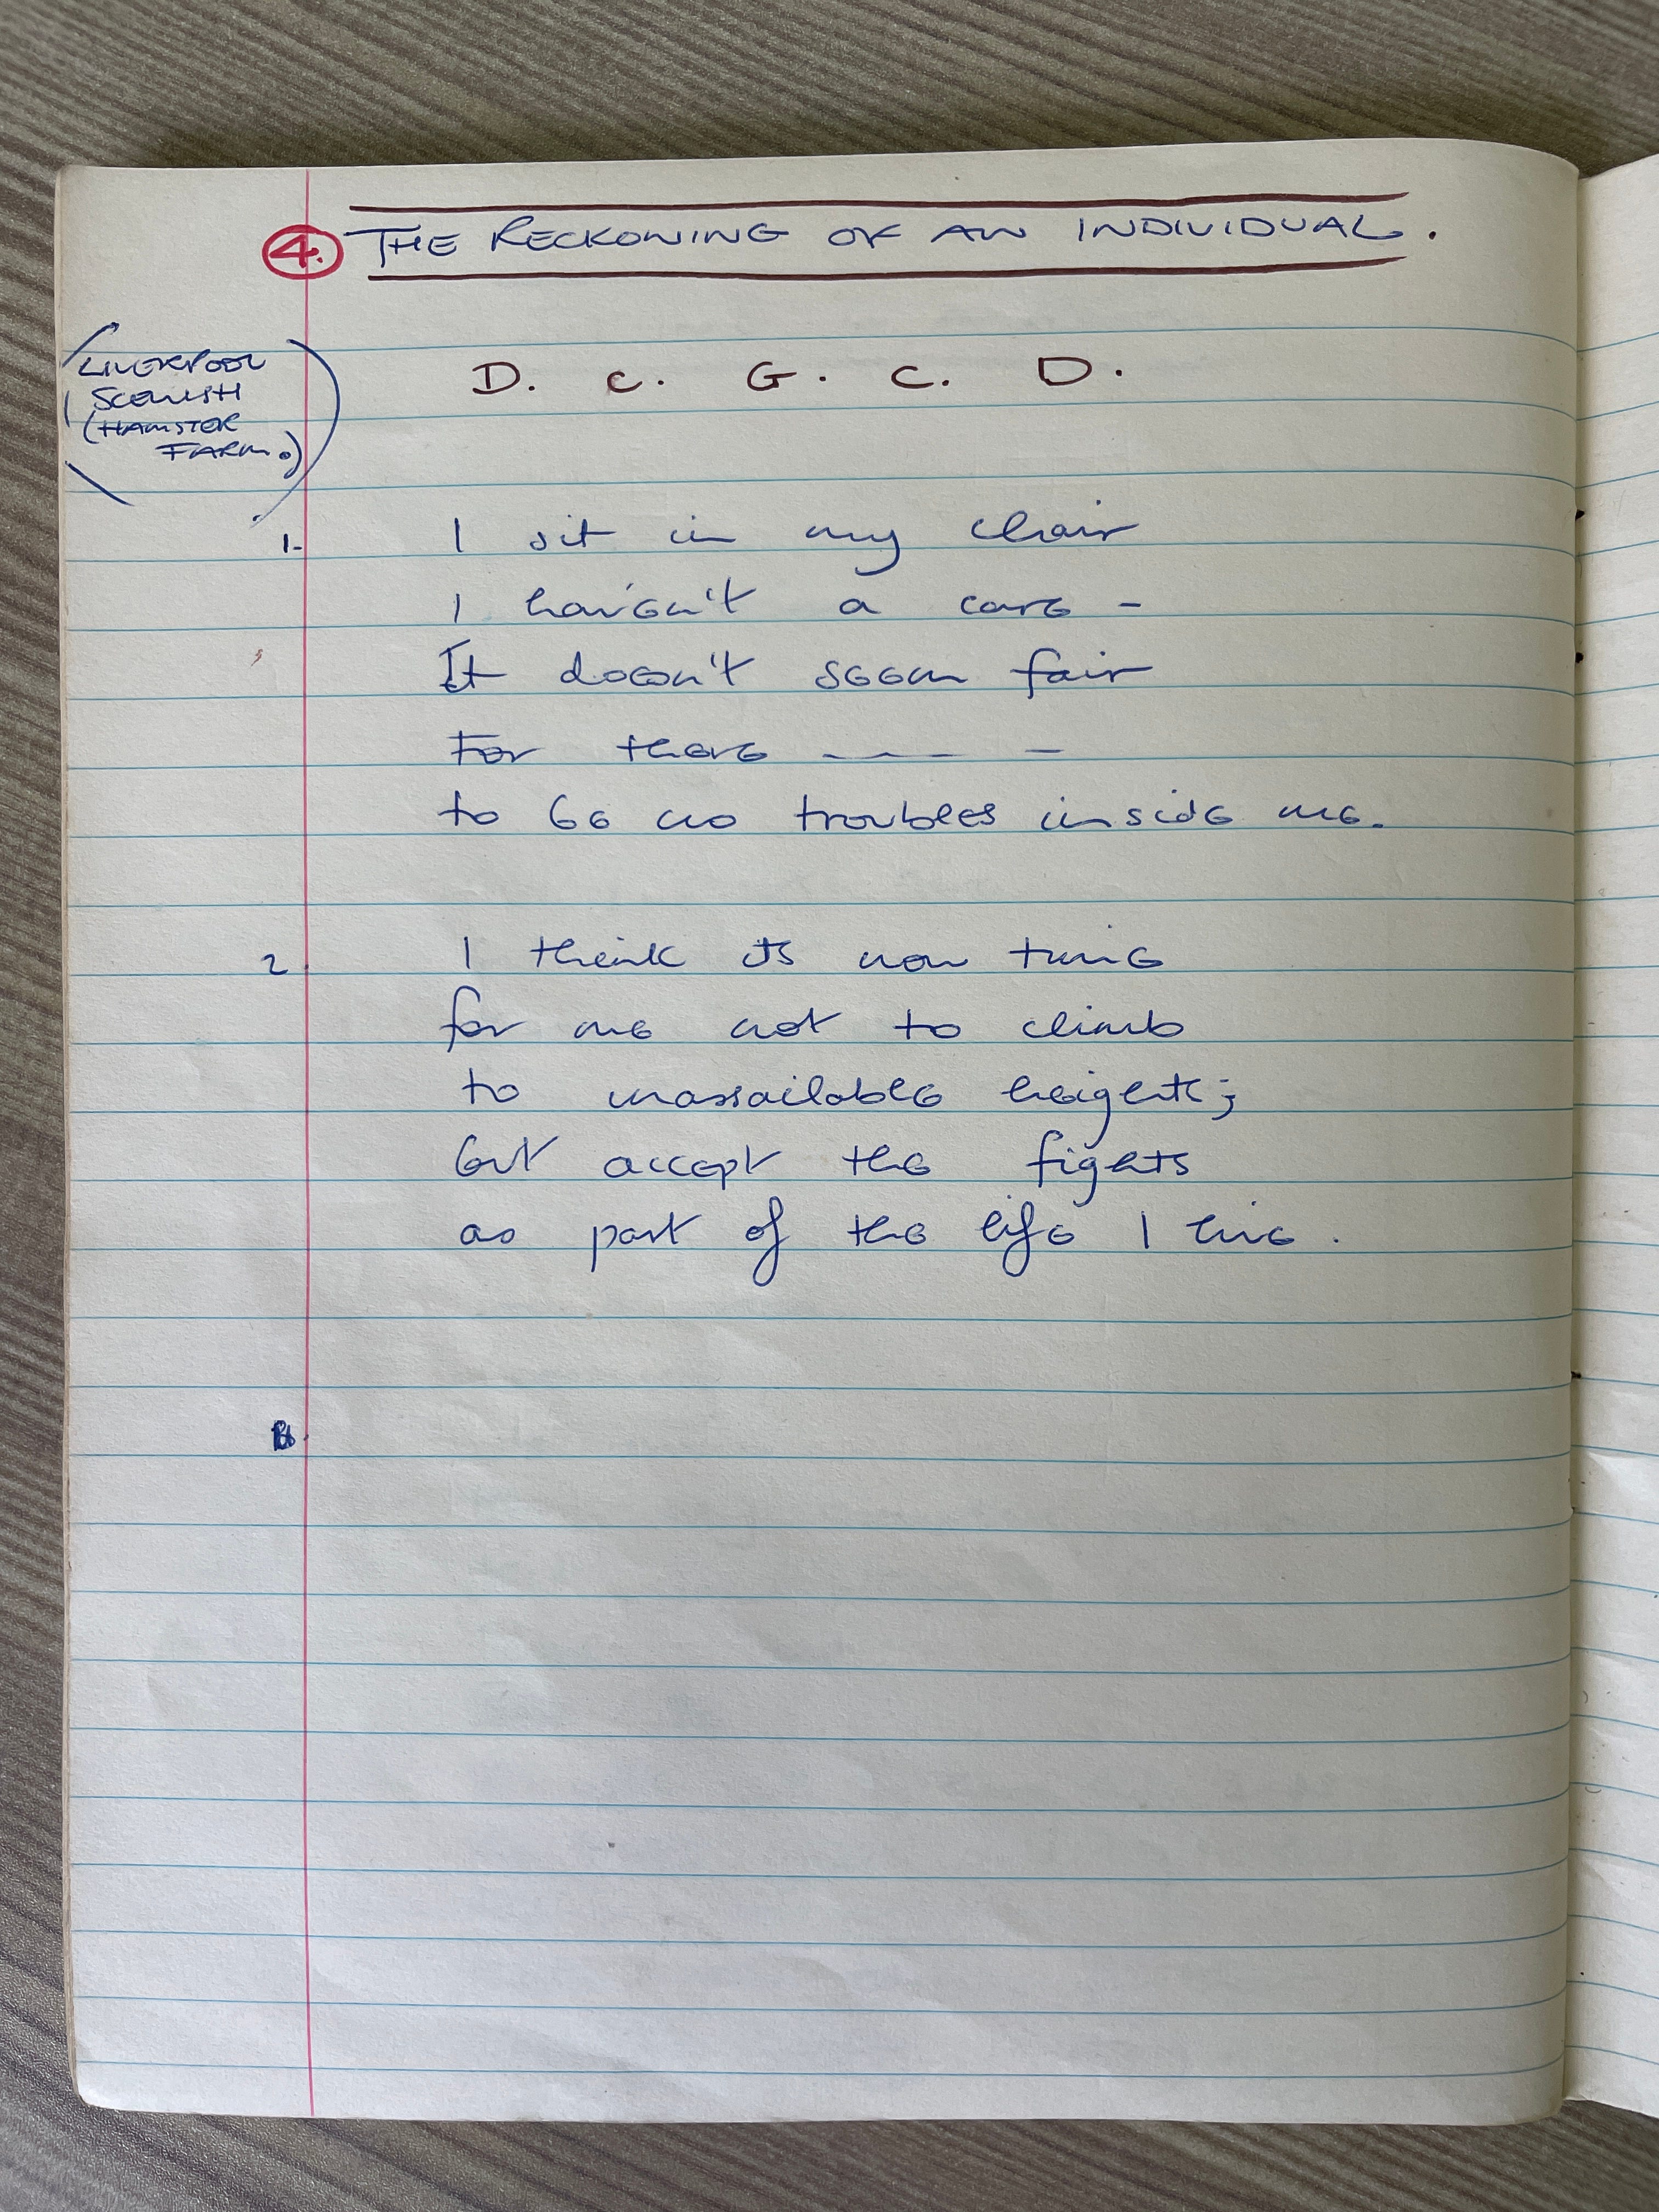 4. THE RECKONING OF AN INDIVIDUAL.
(LIVERPOOL
(HAMSTER
FARM.)
D. C. G. C. D.
1. I sit in my chair
I haven't a care -
It doesn't seem fair
For there — — —
to be no troubles inside me.
2. I think its now time
for me not to climb
to unassailable heights;
but accept the fights
as part of the life I live.